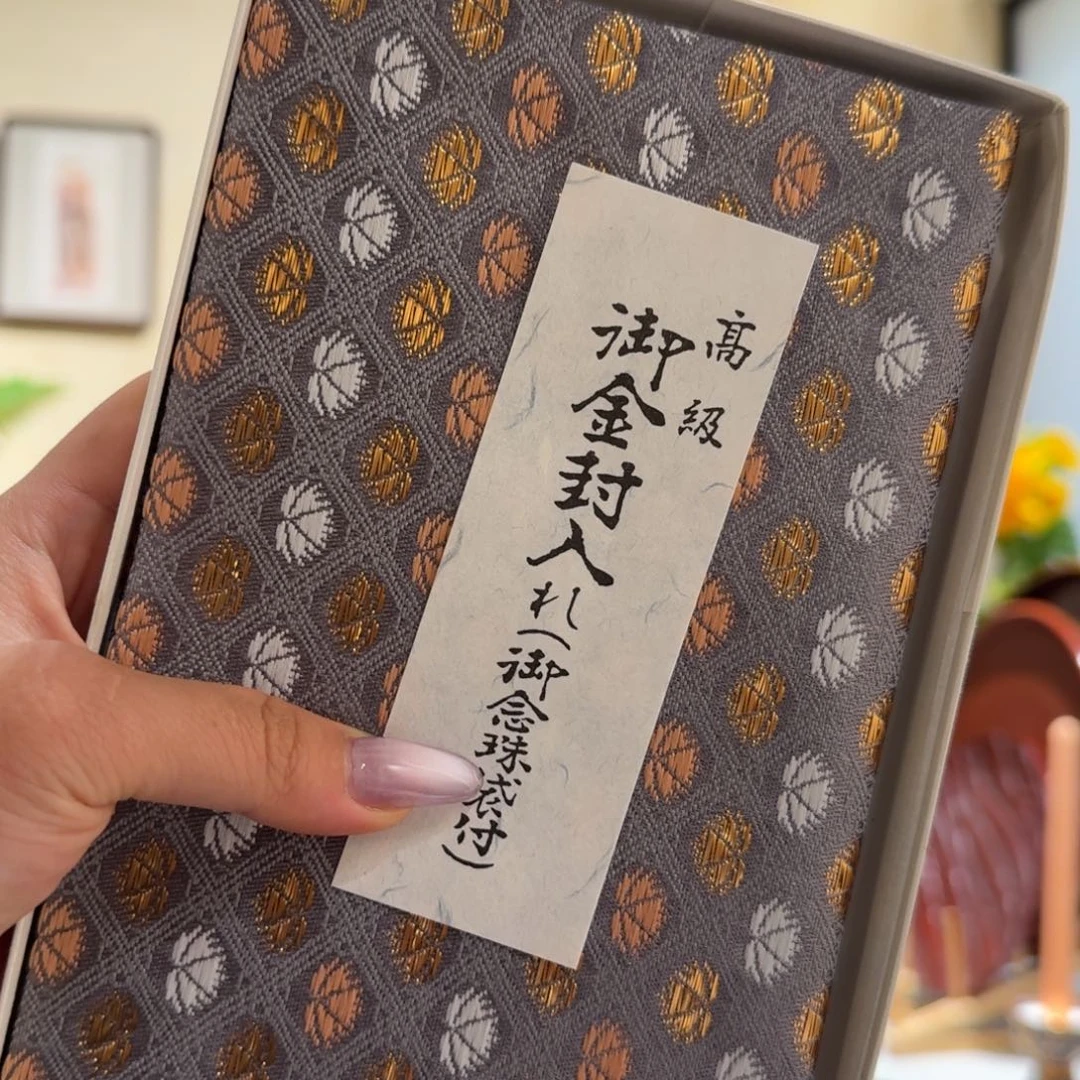 高級
御金封入れ(御念珠袋付)